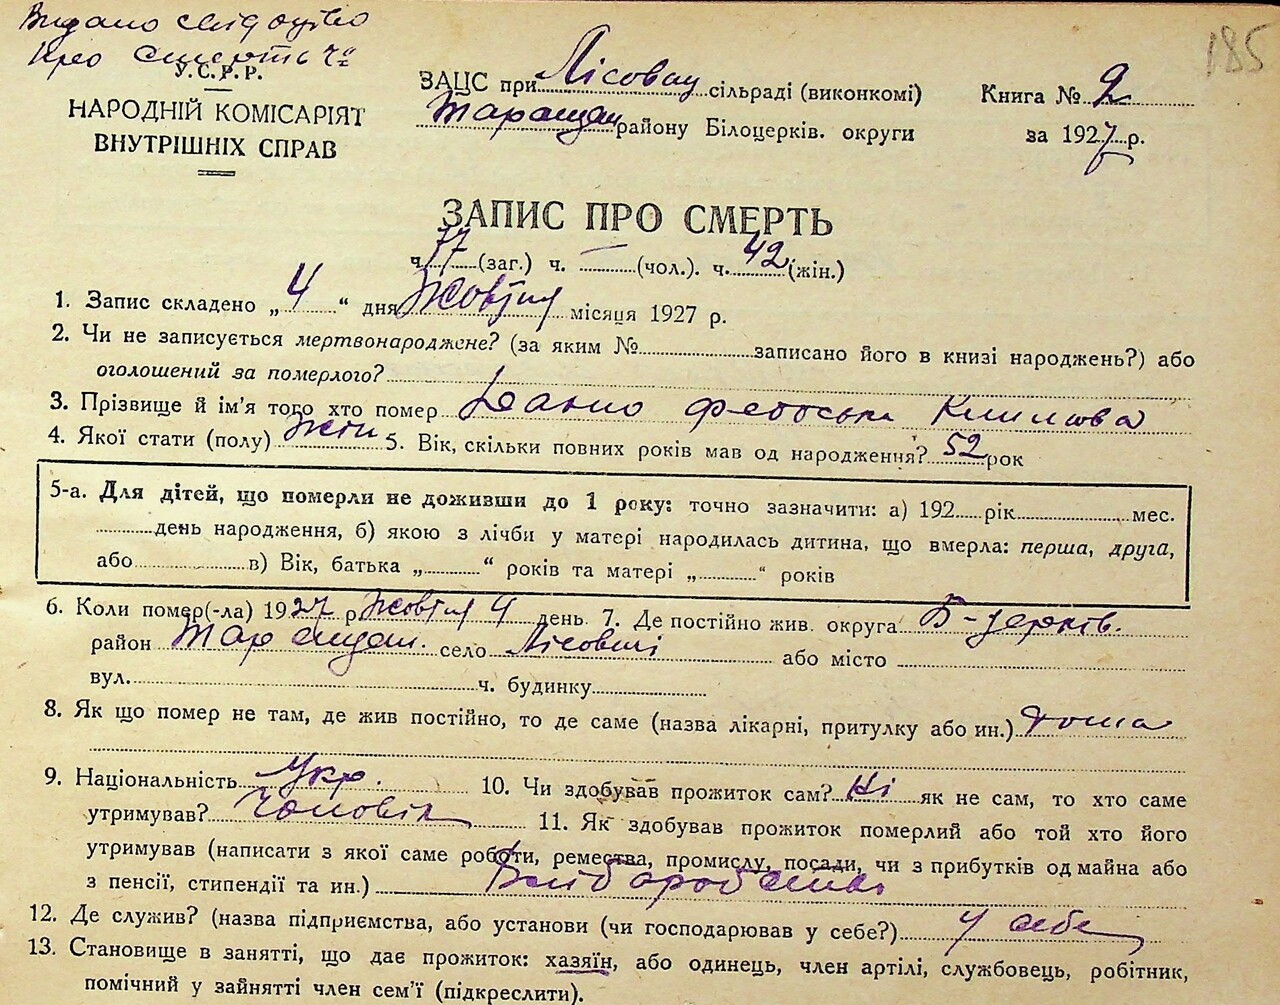 Видано свідоцтво
про смерть
185
У.С.Р.Р.
НАРОДНІЙ КОМІСАРІЯТ
ВНУТРІШНІХ СПРАВ
ЗАЦС при Лісовац сільраді (виконкомі)
Таращан району Білоцерків. округи
Книга № 2
за 1927 р.
ЗАПИС ПРО СМЕРТЬ
ч. 77 (заг.) ч. — (чол.). ч. 42 (жін.)
1. Запис складено „ 4 “ дня Жовтня місяця 1927 р.
2. Чи не записується мертвонароджене? (за яким № записано його в книзі народжень?) або
оголошений за померлого?
3. Прізвище й ім'я того хто помер Феодоська Климова
4. Якої стати (полу) жін 5. Вік, скільки повних років мав од народження? 52 рок
5-а. Для дітей, що померли не доживши до 1 року: точно зазначити: а) 192 рік мес.
день народження, б) якою з лічби у матері народилась дитина, що вмерла: перша, друга,
або в) Вік, батька „ “ років та матері „ “ років
6. Коли помер(-ла) 1927 р. Жовтня 4 день 7. Де постійно жив. округа Б-церків.
район Таращан. село Лісовичі або місто
вул. ч. будинку
8. Як що помер не там, де жив постійно, то де саме (назва лікарні, притулку або ин.) дома
9. Національність Укр. 10. Чи здобував прожиток сам? Ні як не сам, то хто саме
утримував? Чоловік 11. Як здобував прожиток померлий або той хто його
утримував (написати з якої саме роботи, ремества, промислу, посади, чи з прибутків од майна або
з пенсії, стипендії та ин.) Хліборобство
12. Де служив? (назва підприємства, або установи (чи господарював у себе?) у себе
13. Становище в занятті, що дає прожиток: хазяїн, або одинець, член артілі, службовець, робітник,
помічний у зайнятті член сем'ї (підкреслити).